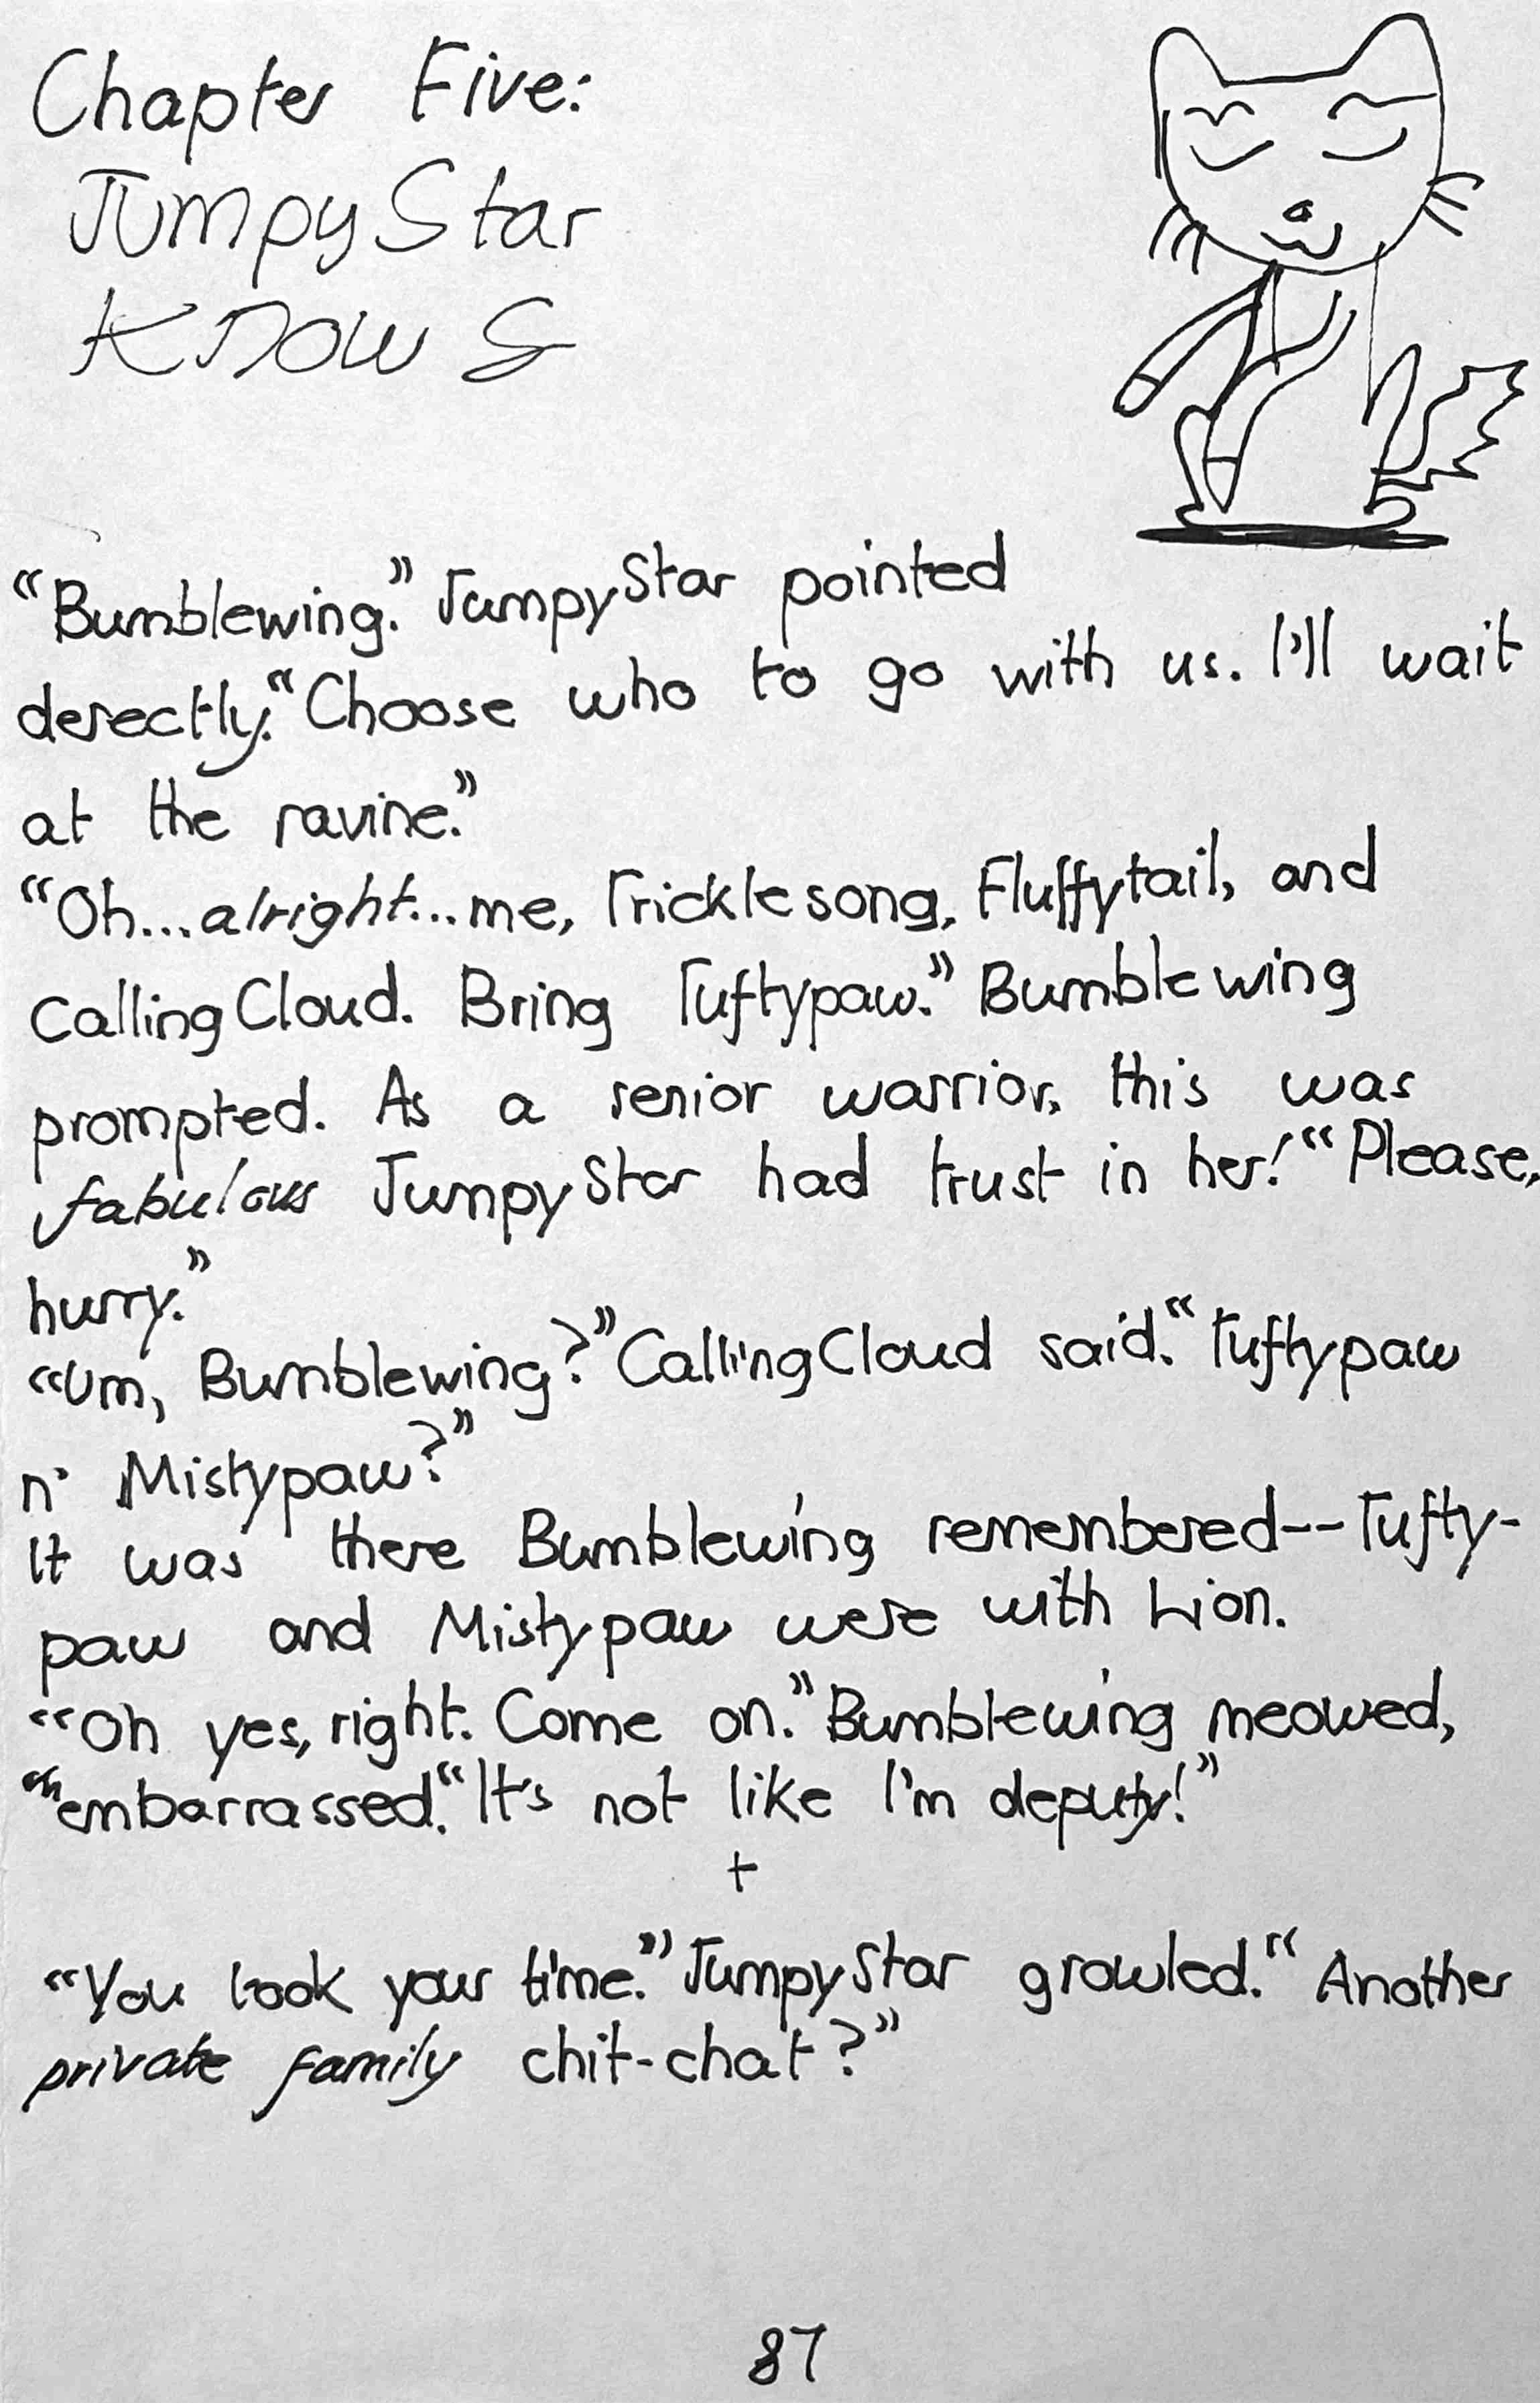 Chapter Five:
JumpyStar
Knows
"Bumblewing." JumpyStar pointed
derectly. "Choose who to go with us. I'll wait
at the ravine."
"Oh...alright...me, Tricklesong, Fluffytail, and
CallingCloud. Bring Tuftypaw." Bumblewing
prompted. As a senior warrior, this was
fabulous JumpyStar had trust in her! "Please,
hurry."
"Um, Bumblewing?" CallingCloud said. "Tuftypaw
n' Mistypaw?"
It was there Bumblewing remembered--Tufty-
paw and Mistypaw were with Lion.
"Oh yes, right. Come on." Bumblewing meowed,
embarrassed. "It's not like I'm deputy!"
+
"You took your time." JumpyStar growled. "Another
private family chit-chat?"
87